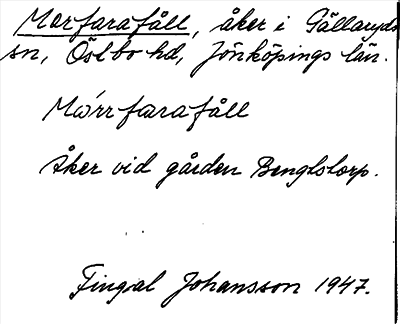 Morfarafåll, åker i Gällaryds
sn, Östbo hd, Jönköpings län.
Mωrr farafåll
Åker vid gården Bengtstorp.
Fingal Johansson 1947.